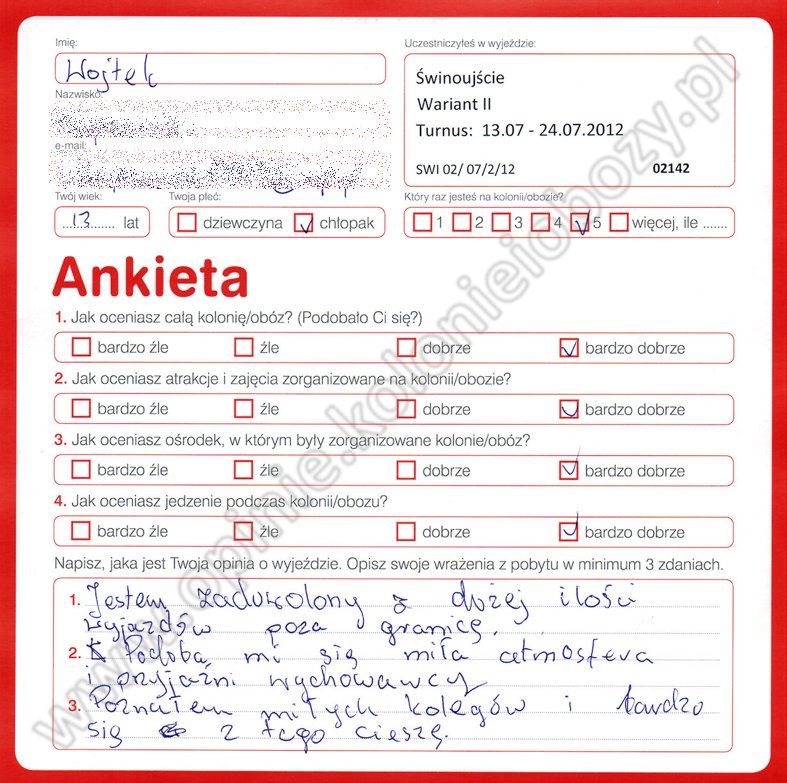 Imię:
Wojtek
Uczestniczyłeś w wyjeździe:
Świnoujście
Wariant II
Turnus: 13.07 - 24.07.2012
SWI 02/ 07/2/12 02142
Nazwisko:
e-mail:
Twój wiek:
13 lat
Twoja płeć:
dziewczyna chłopak
Który raz jesteś na kolonii/obozie?
1 2 3 4 5 więcej, ile .......
Ankieta
1. Jak oceniasz całą kolonię/obóz? (Podobało Ci się?)
bardzo źle źle dobrze bardzo dobrze
2. Jak oceniasz atrakcje i zajęcia zorganizowane na kolonii/obozie?
bardzo źle źle dobrze bardzo dobrze
3. Jak oceniasz ośrodek, w którym były zorganizowane kolonie/obóz?
bardzo źle źle dobrze bardzo dobrze
4. Jak oceniasz jedzenie podczas kolonii/obozu?
bardzo źle źle dobrze bardzo dobrze
Napisz, jaka jest Twoja opinia o wyjeździe. Opisz swoje wrażenia z pobytu w minimum 3 zdaniach.
1. Jestem zadowolony z dużej ilości
wyjazdów poza granicę.
2. Podoba mi się miła atmosfera
i przyjaźni wychowawcy
3. Poznałem miłych kolegów i bardzo
się z tego cieszę.
www.opinie.kolonieiobozy.pl